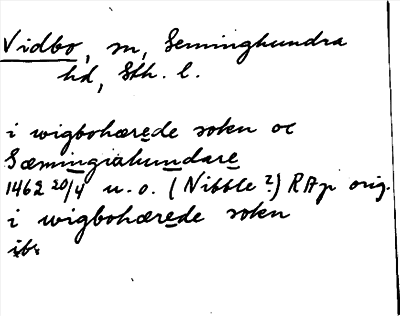 Vidbo, sn, Seminghundra
hd, Sth. l.
i wigbohærede sokn oc
Sæmingiahundare
1462 20/4 u. o. (Nibble?) RAp orig.
i wigbohærede sokn
ib.